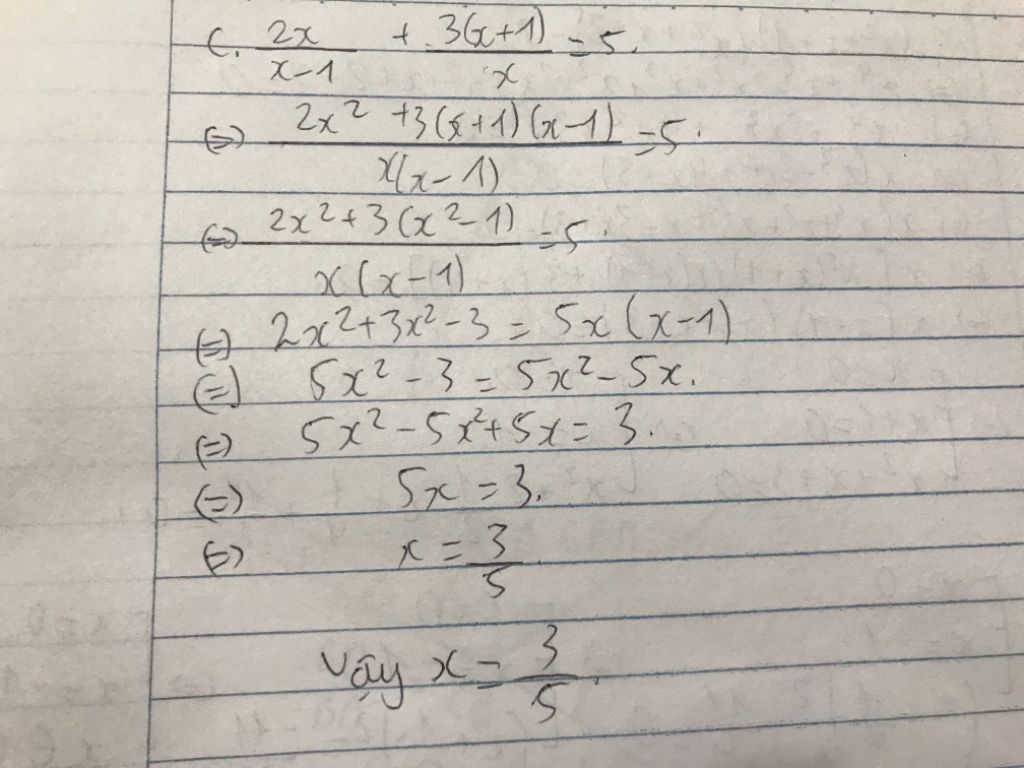 c. 2x/(x-1) + 3(x+1)/x = 5.
(=) (2x² + 3(x+1)(x-1))/(x(x-1)) = 5.
(=) (2x² + 3(x²-1))/(x(x-1)) = 5.
(=) 2x² + 3x² - 3 = 5x(x-1)
(=) 5x² - 3 = 5x² - 5x.
(=) 5x² - 5x² + 5x = 3.
(=) 5x = 3.
(=) x = 3/5
Vậy x = 3/5.